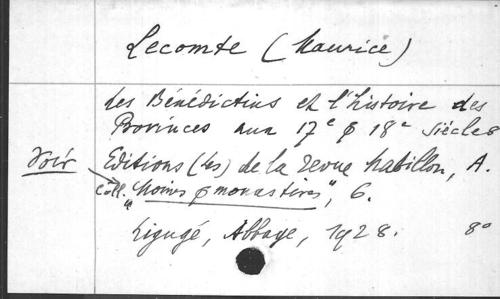 Lecomte (Maurice)
Les Bénédictins et l'histoire des
Provinces aux 17e & 18e siècles
Voir Editions (les) de la revue Mabillon, A.
Coll. "Moines & monastères", 6.
Ligugé, Abbaye, 1928. 8°